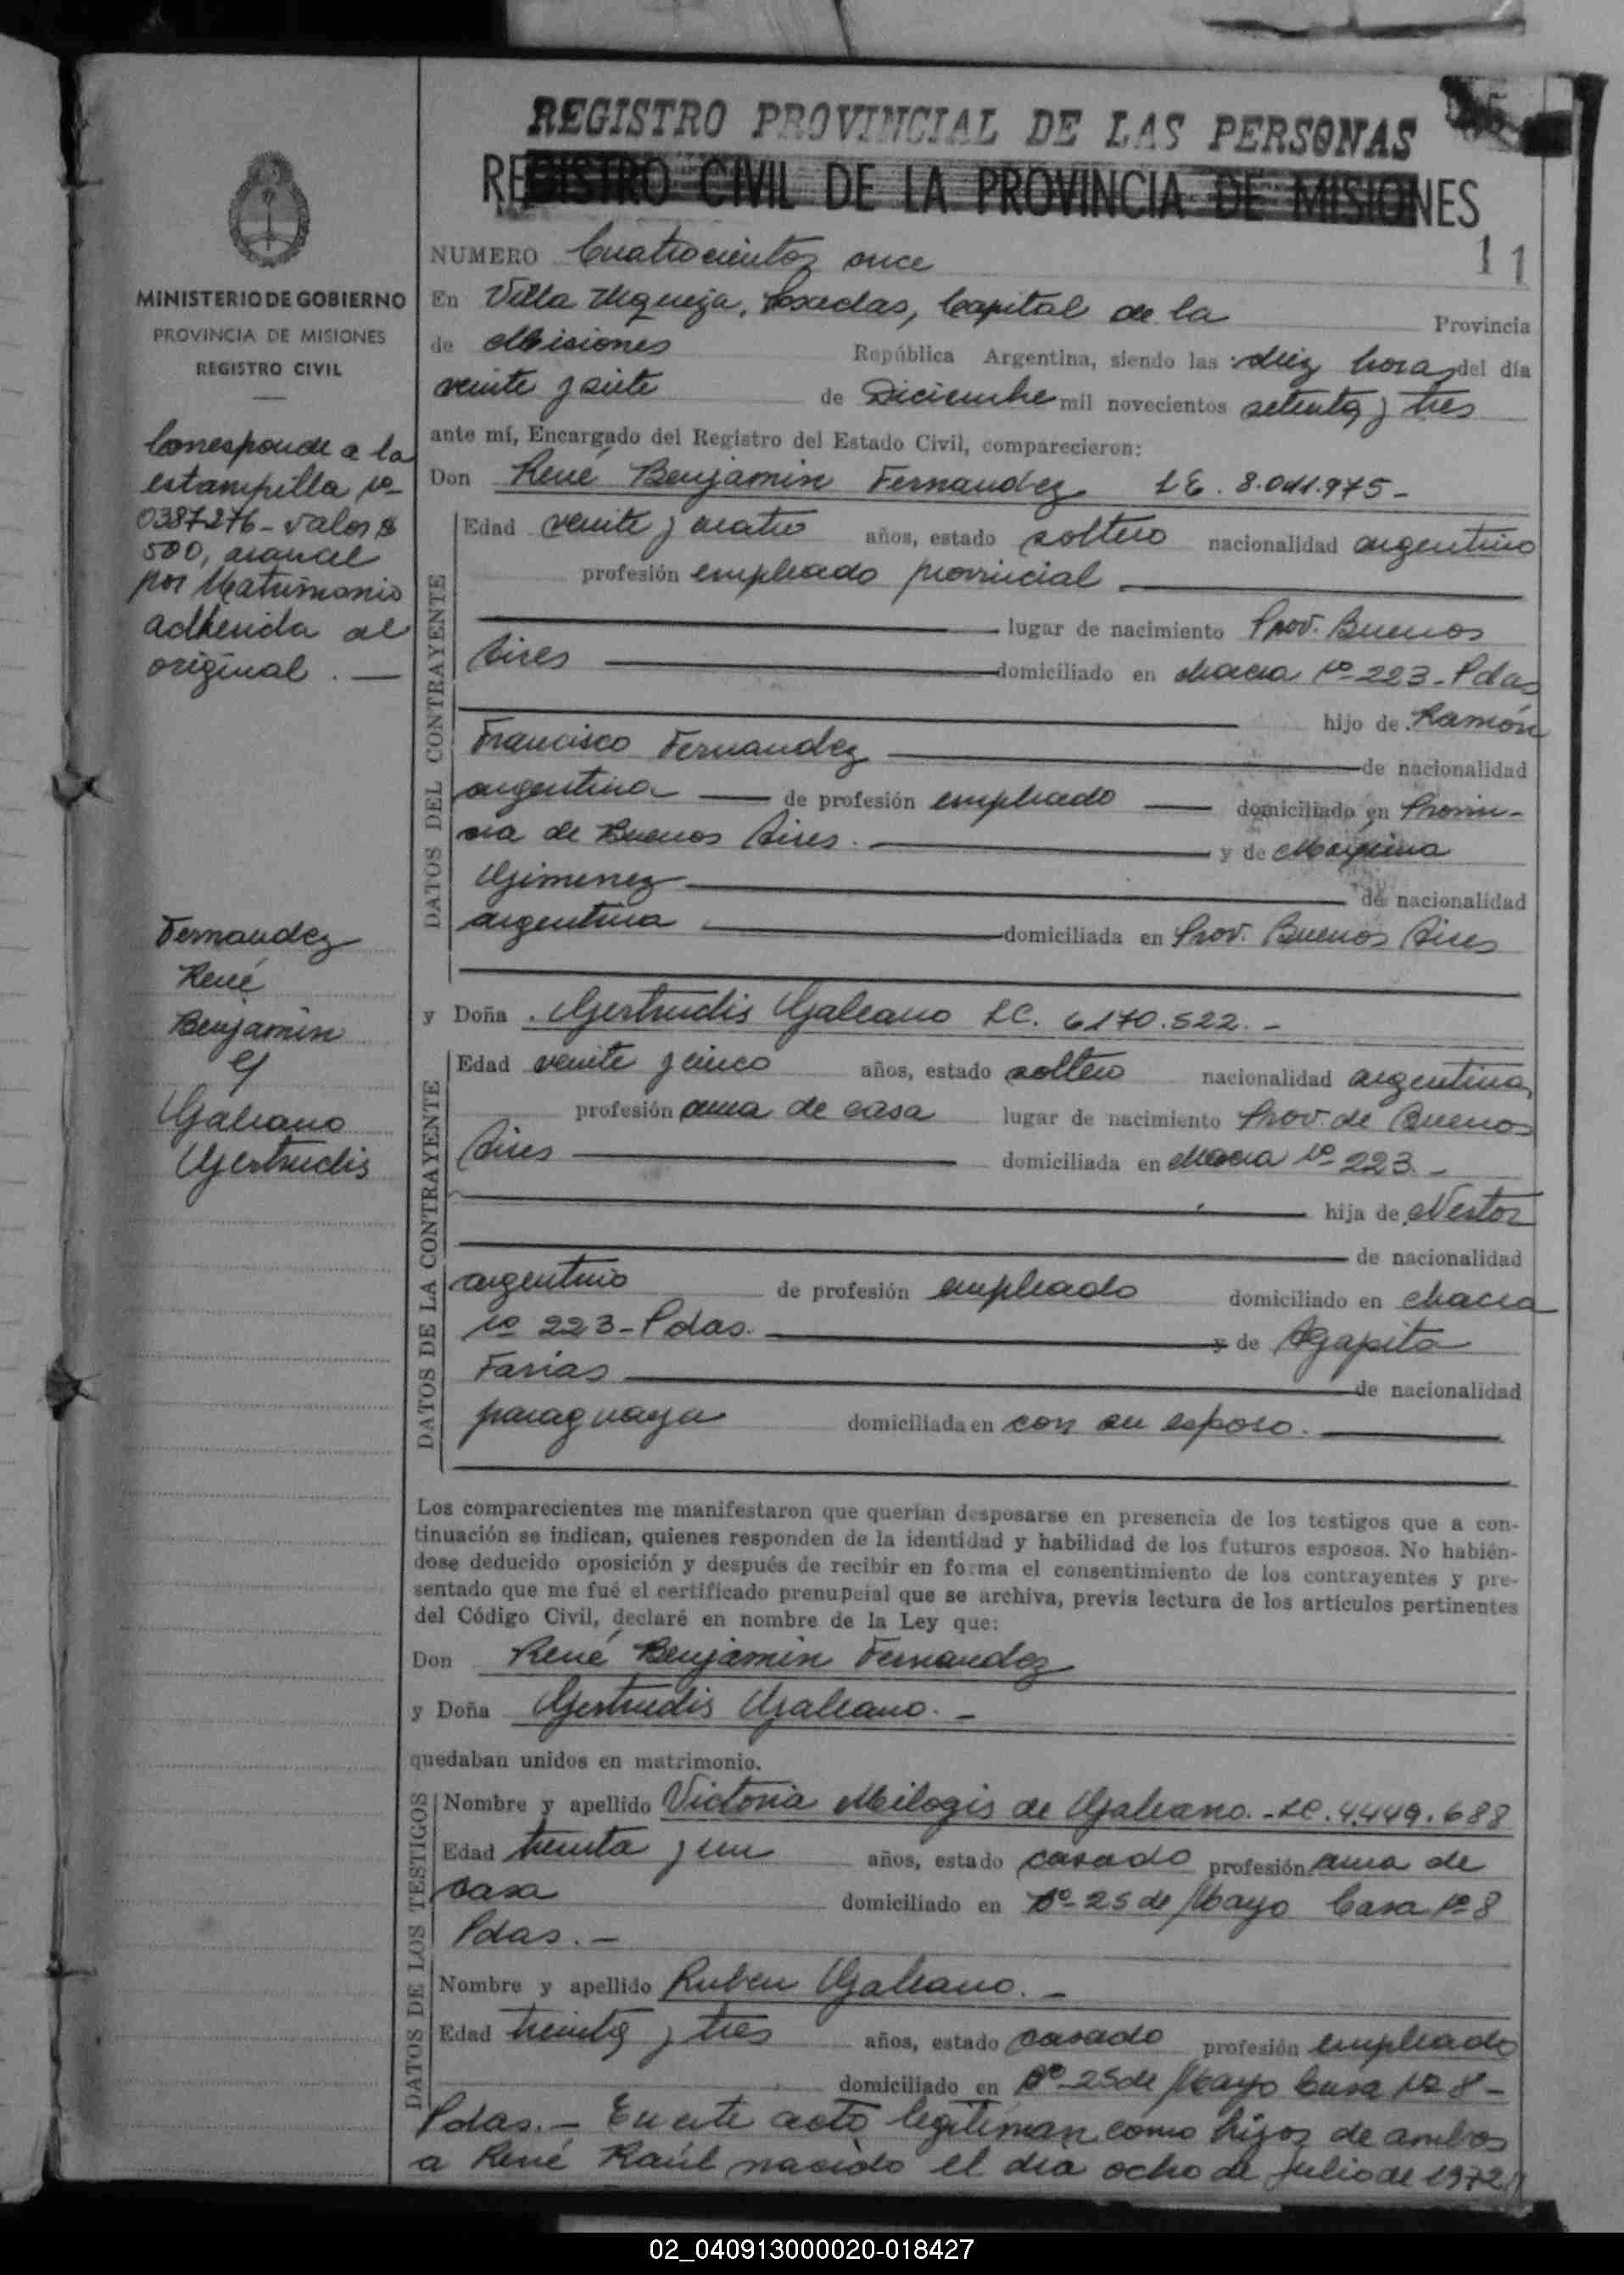 REGISTRO PROVINCIAL DE LAS PERSONAS
REGISTRO CIVIL DE LA PROVINCIA DE MISIONES
11
MINISTERIO DE GOBIERNO
PROVINCIA DE MISIONES
REGISTRO CIVIL
Corresponde a la
estampilla Nº
0387276 - valor $
500, arancel
por Matrimonio
adherida al
original. —
Fernandez
René
Benjamin
y
Galeano
Gertrudis
NUMERO Cuatrocientos once
En Villa Urquiza, Posadas, Capital de la Provincia
de Misiones República Argentina, siendo las diez horas del día
veinte y siete de Diciembre mil novecientos setenta y tres
ante mí, Encargado del Registro del Estado Civil, comparecieron:
Don René Benjamin Fernandez L E. 8.041.975 -
DATOS DEL CONTRAYENTE
Edad veinte y cuatro años, estado soltero nacionalidad argentino
profesión empleado provincial
lugar de nacimiento Prov. Buenos
Aires domiciliado en chacra Nº 223 - Pdas
hijo de Ramón
Francisco Fernandez de nacionalidad
argentina de profesión empleado domiciliado en Provin-
cia de Buenos Aires. y de
Gimenez de nacionalidad
argentina domiciliada en Prov. Buenos Aires
y Doña Gertrudis Galeano L C. 6170.522. -
DATOS DE LA CONTRAYENTE
Edad veinte y cinco años, estado soltero nacionalidad argentina,
profesión ama de casa lugar de nacimiento Prov. de Buenos
Aires domiciliada en chacra Nº 223. -
hija de Nestor
de nacionalidad
argentino de profesión empleado domiciliado en chacra
Nº 223 - Pdas. y de Agapita
Farias de nacionalidad
paraguaya domiciliada en con su esposo.
Los comparecientes me manifestaron que querían desposarse en presencia de los testigos que a con-
tinuación se indican, quienes responden de la identidad y habilidad de los futuros esposos. No habién-
dose deducido oposición y después de recibir en forma el consentimiento de los contrayentes y pre-
sentado que me fué el certificado prenupcial que se archiva, previa lectura de los artículos pertinentes
del Código Civil, declaré en nombre de la Ley que:
Don René Benjamin Fernandez
y Doña Gertrudis Galeano. -
quedaban unidos en matrimonio.
DATOS DE LOS TESTIGOS
Nombre y apellido Victoria Milogis de Galeano. - LC. 4.449.688
Edad treinta y un años, estado casado profesión ama de
casa domiciliado en Bº 25 de Mayo Casa Nº 8
Pdas. -
Nombre y apellido Ruben Galeano. -
Edad treinta y tres años, estado casado profesión empleado
domiciliado en Bº 25 de Mayo Casa Nº 8 -
Pdas. - En este acto legitiman como hijos de ambos
a René Raúl nacido el dia ocho de julio de 1972 //
02_040913000020-018427